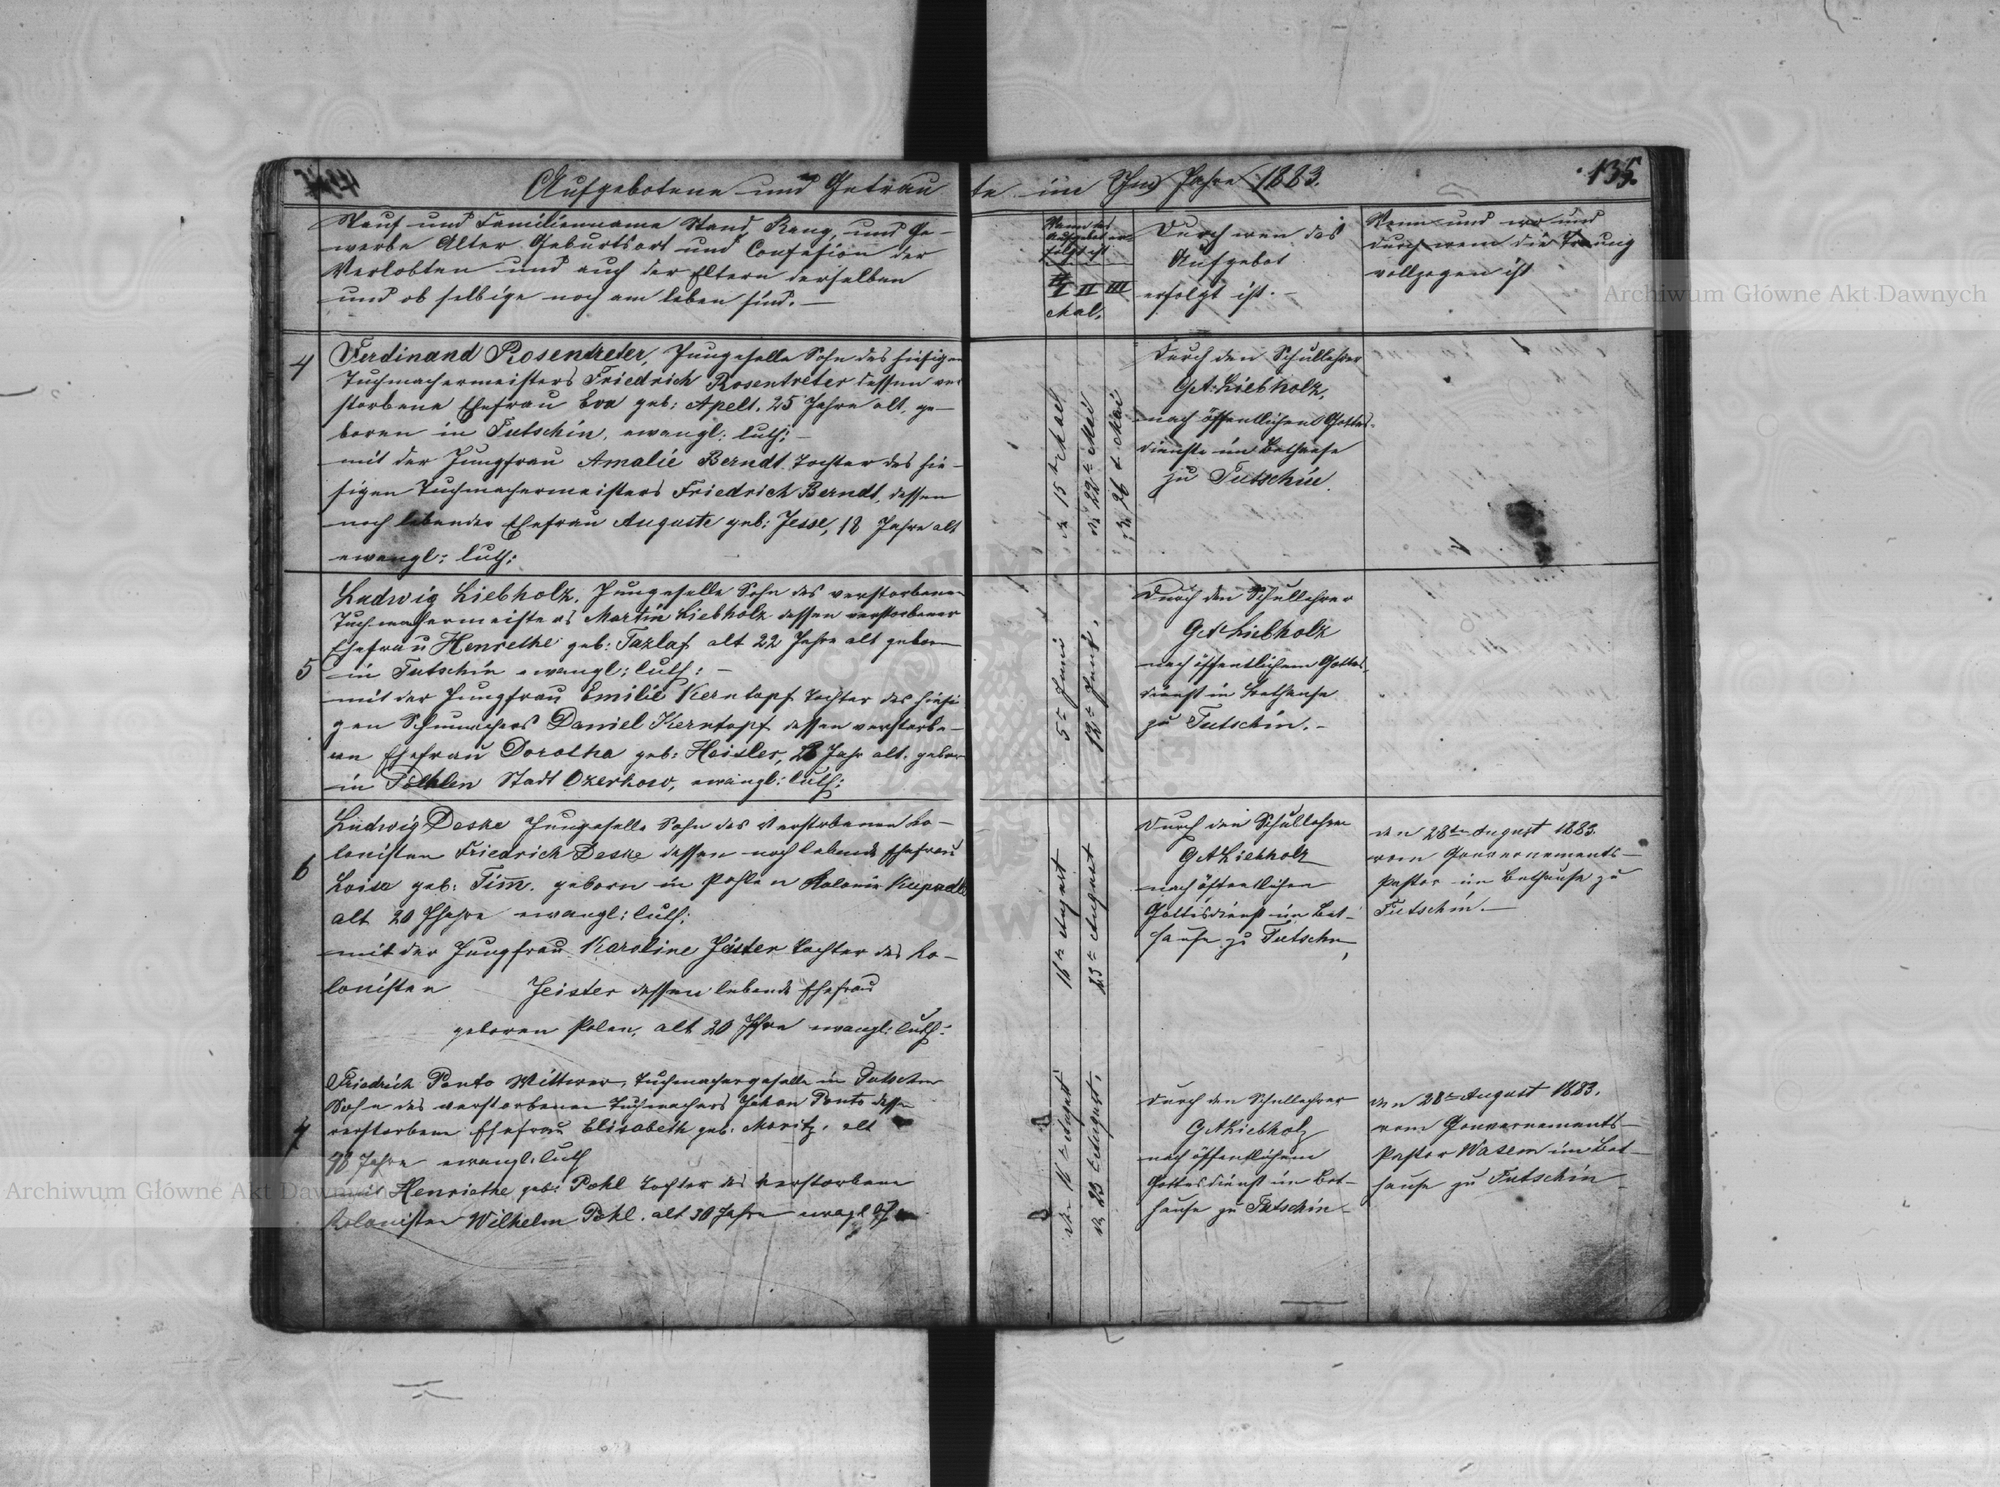 Aufgebotene und Getrau
te im Jahre 1883.
135.
Tauf und Familienname Stand Rang, und Ge-
werbe Alter Geburtsort und Confesion der
Verlobten und auch der Eltern derselben
und ob selbige noch am leben sind. —
Wann das
Aufgebot er-
folgt ist
I II III
Mal.
Durch wen das
Aufgebot
erfolgt ist. —
Wann und wo und
durch wem die Trauung
vollzogen ist
4
Ferdinand Rosentreter, Junggeselle Sohn des hiesigen
Tuchmachermeisters Friedrich Rosentreter dessen ver
storbene Ehefrau Eva geb: Apelt, 25 Jahre alt, ge-
boren in Tutschin, ewangl: luth: —
mit der Jungfrau Amalie Berndt Tochter des hie-
sigen Tuchmachermeisters Friedrich Berndt, dessen
noch lebender Ehefrau Auguste geb: Jesse, 18 Jahre alt
ewangl: luth:
d 15
d 22te Mai
d 26 t. Mai
Durch den Schullehrer
GA: Liebholz,
nach öffentlichen Gottes-
dienste im Bethause
zu Tutschin.
5
Ludwig Liebholz, Junggeselle Sohn des verstorbenen
Tuchmachermeisters Martin Liebholz dessen verstorbener
Ehefrau Henrethe geb: Tazlaf alt 22 Jahre alt geborn
in Tutschin ewangl: luth: —
mit der Jungfrau Emilie Kerntopf Tochter des hiesi
gen Schumachers Daniel Kerntopf dessen verstorbe-
nen Ehefrau Dorotha geb: Heisler, Jahr alt, geborn
in Stadt Ozerkow, ewangl: luth:
5te Juni
12te Juni.
Durch den Schullehrer
GA Liebholz
nach öffentlichem Gottes-
dienst in Bethause
zu Tutschin. —
6
Ludwig Deske Junggeselle Sohn des Verstorbenen Ko-
lonisten Friedrich Deske dessen noch lebende Ehefrau
Loise geb: Timm. geborn in Pohlen Kolonie
alt 20 Jahre ewangl: luth:
mit der Jungfrau Karoline Jeister Tochter des Ko-
lonisten Jeister dessen lebende Ehefrau
geboren Polen, alt 20 Jahre ewangl: luth:
16te August
23te August
Durch den Schullehrer
GA Liebholz
nach öffentlichen
Gottesdienst im Bet-
hause zu Tutschn,
den 28ten August 1883.
vom Gouvernements-
Pastor im Bethause zu
Tutschin. —
7
Friedrich Ponto Wittwer, Tuchmachergeselle in Tutschin
Sohn des verstorbenen Tuchmachers Johan Ponto dessen
verstorbene Ehefrau Elisabeth geb: Moritz. alt
48 Jahre ewangl: luth
mit Henriethe geb: Pohl Tochter des Verstorbene
Kolonisten Wilhelm Pohl, alt 30 Jahre ewagl
den 16te August
d 23te August.
Durch den Schullehrer
GA Liebholz
nach öffentlichem
Gottesdienst im Bet-
hause zu Tutschin
den 28te August 1883.
vom Gouvernements-
Pastor Wasem im Bet-
hause zu Tutschin
Archiwum Główne Akt Dawnych
Archiwum Główne Akt Dawnych